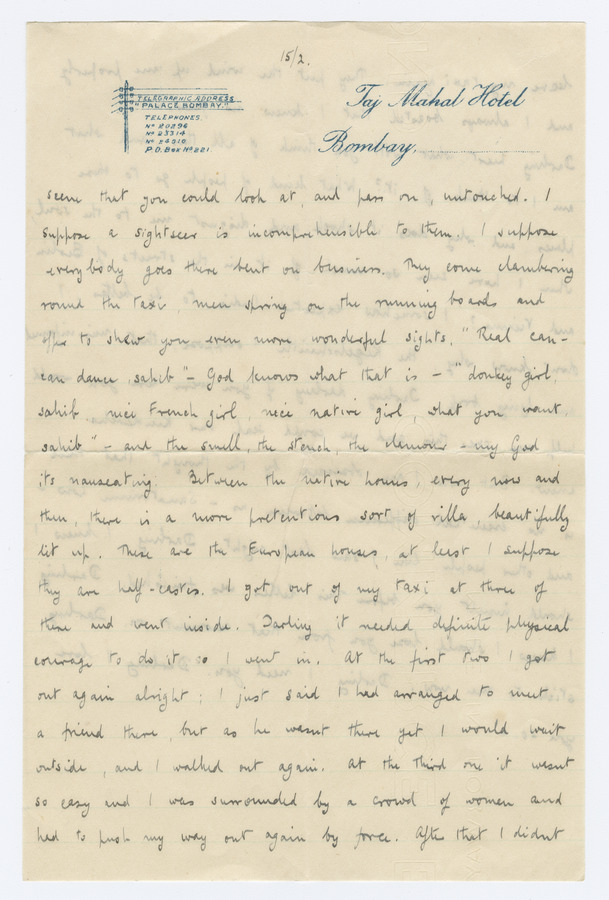 15/2.
TELEGRAPHIC ADDRESS
"PALACE BOMBAY."
TELEPHONES
Nº 20296
Nº 23314
Nº 24010
P.O. Box Nº 221.
Taj Mahal Hotel
Bombay,
scene that you could look at, and pass on, untouched. I
suppose a sightseer is incomprehensible to them. I suppose
everybody goes there bent on business. They come clambering
round the taxi, men spring on the running boards and
offer to show you even more wonderful sights. "Real can-
can dance, sahib" – God knows what that is – "donkey girl,
sahib, nice French girl, nice native girl, what you want,
sahib" – and the smell, the stench, the clamour – my God
its nauseating. Between the native houses, every now and
then, there is a more pretentious sort of villa beautifully
lit up. These are the European houses, at least I suppose
they are half-castes. I got out of my taxi at three of
these and went inside. Darling it needed definite physical
courage to do it so I went in. At the first two I got
out again alright; I just said I had arranged to meet
a friend there, but as he wasnt there yet I would wait
outside, and I walked out again. At the third one it wasnt
so easy and I was surrounded by a crowd of women and
had to push my way out again by force. After that I didnt